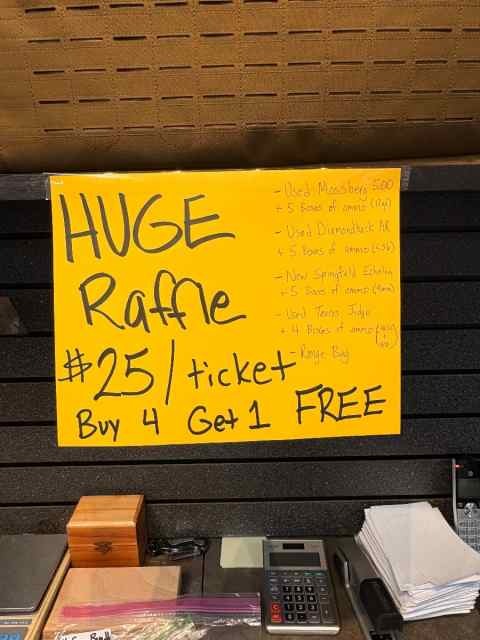 HUGE
Raffle
$25/ticket
Buy 4 Get 1 FREE
- Used Mossberg 500
+ 5 Boxes of ammo (12g)
- Used Diamondback AR
+ 5 Boxes of ammo (5.56)
- New Springfield Echelon
+ 5 Boxes of ammo (9mm)
- Used Taurus Judge
+ 4 Boxes of ammo
- Range Bag